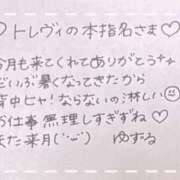 ♡トレヴィの本指名さま♡
今月も来てくれてありがとう++
だいぶ暑くなってきたから
背中ヒャ!ならないの淋しい😊
お仕事無理しすぎずね♡
また来月(¨) ゆずる